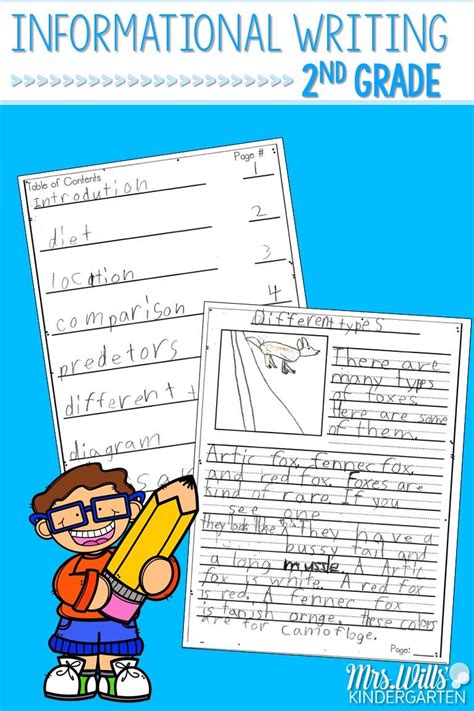 INFORMATIONAL WRITING
2ND GRADE
Table of Contents
Page #
Introdution
1
diet
2
location
3
comparison
4
predetors
different t
diagram
Different types
There are
many types
of foxes
Here are some
of them.
Artic fox, fennec fox,
and red fox. Foxes are
kind of rare. If you
see one
they look like this. They have a
bussy tail and
a long mussle. A Artic
fox is white. A red fox
is red. A fennec fox
is tanish ornge. these colors
are for camofloge.
Page:
Mrs. Wills'
KINDERGARTEN